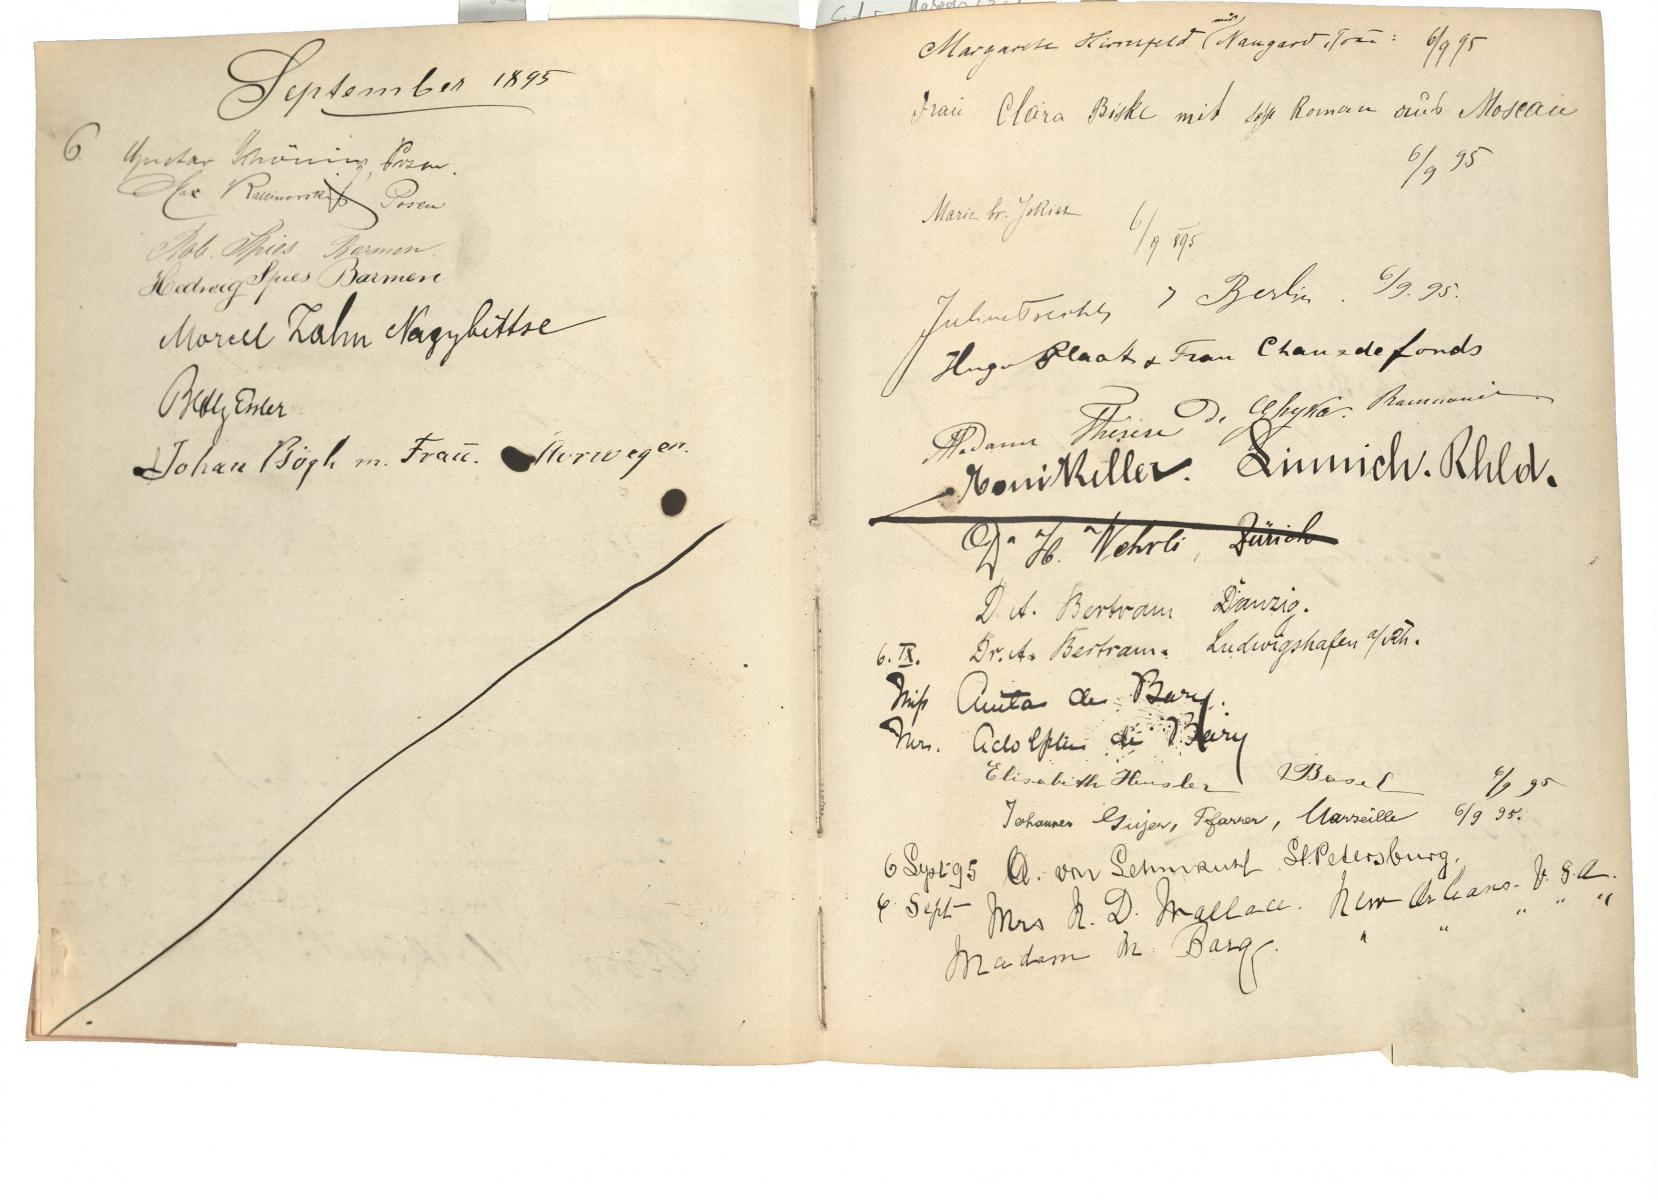 September 1895
6. Gustav Schöning, Posen.
Max Posen
Rob. Spies Barmen.
Hedwig Spies Barmen
Morell Zahn Nagybittse
Betty Essler
Johan Bögh m. Frau. Norwegen.
Margarete Hirschfeld Naugard 6/9 95
Frau Clara Biske mit Roman aus Moscau
6/9 95
Marie
6/9 895
Berlin. 6/9. 95.
Hugo Plaat & Frau Chauxdefonds
Madame Thérèse
Toni Keller. Linnich. Rhld.
Dr H. Wehrli, Zürich
D. A. Bertram Danzig.
6. IX. Dr. A. Bertram. Ludwigshafen a/Rh.
Miss Anita de Bary.
Mrs. Adolphe de Bary
Elisabeth Heusler Basel 6/9 95
Johannes Gujer, Pfarrer, Marseille 6/9 95.
6 Sept 95 A. von St. Petersburg.
6 Sept Mrs N. D. Wallace. New Orleans. U. S. A.
Madam M. " " " "